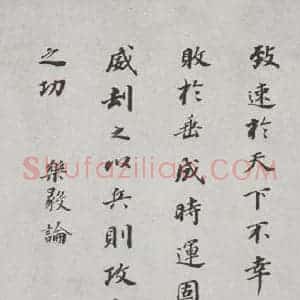 致速於天下不幸
敗於垂成時運固
威刼之以兵則攻
之功
樂毅論
Shufazilian.COM